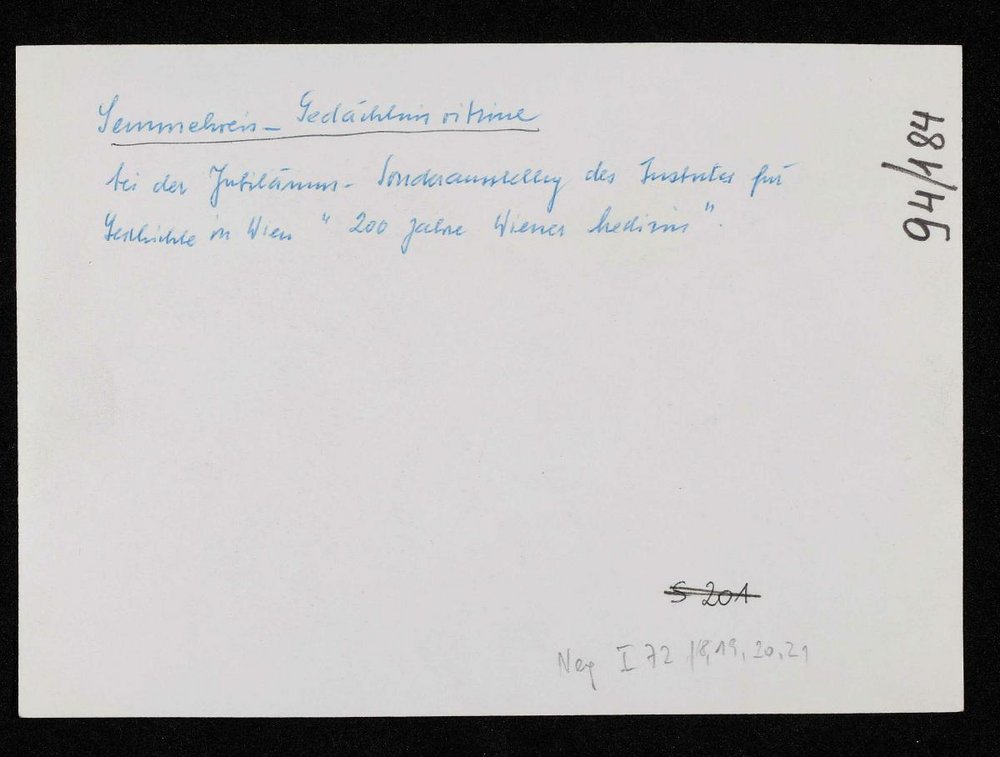 Semmelweis - Gedächtnisvitrine
bei der Jubiläums- Sonderausstellung des Institutes für
Geschichte in Wien " 200 Jahre Wiener Medizin".
94/184
S 201
Neg I 72 /18, 19, 20, 21